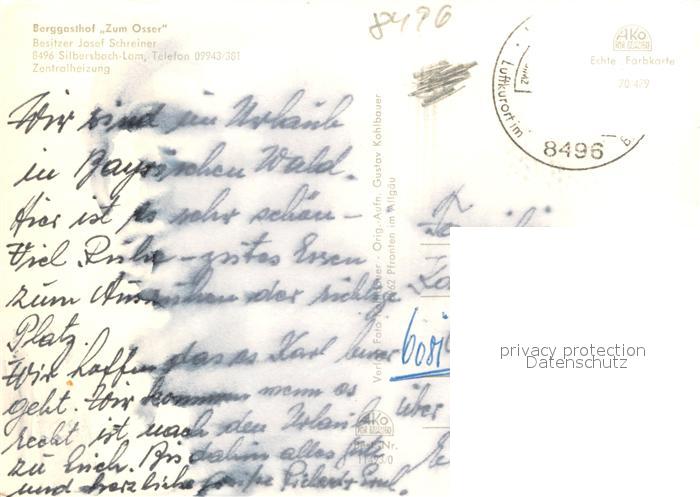 Berggasthof „Zum Osser"
Besitzer Josef Schreiner
8496 Silbersbach-Lam, Telefon 09943/381
Zentralheizung
8496
AKO
Echte Farbkarte
70/479
Luftkurort im
8496
Wir sind im Urlaub
in Bayrischen Wald.
Hier ist es sehr schön -
Viel Ruhe - gutes Essen
zum Ausruhen der richtige
Platz.
Wir hoffen das es Karl besser
geht. Wir kommen wenn es
recht ist, nach den Urlaub
zu Euch. Bis dahin alles gute
und herzliche Grüße
Orig.-Aufn. Gustav Kohlbauer
Pfronten im Allgäu
über
AKO
privacy protection
Datenschutz